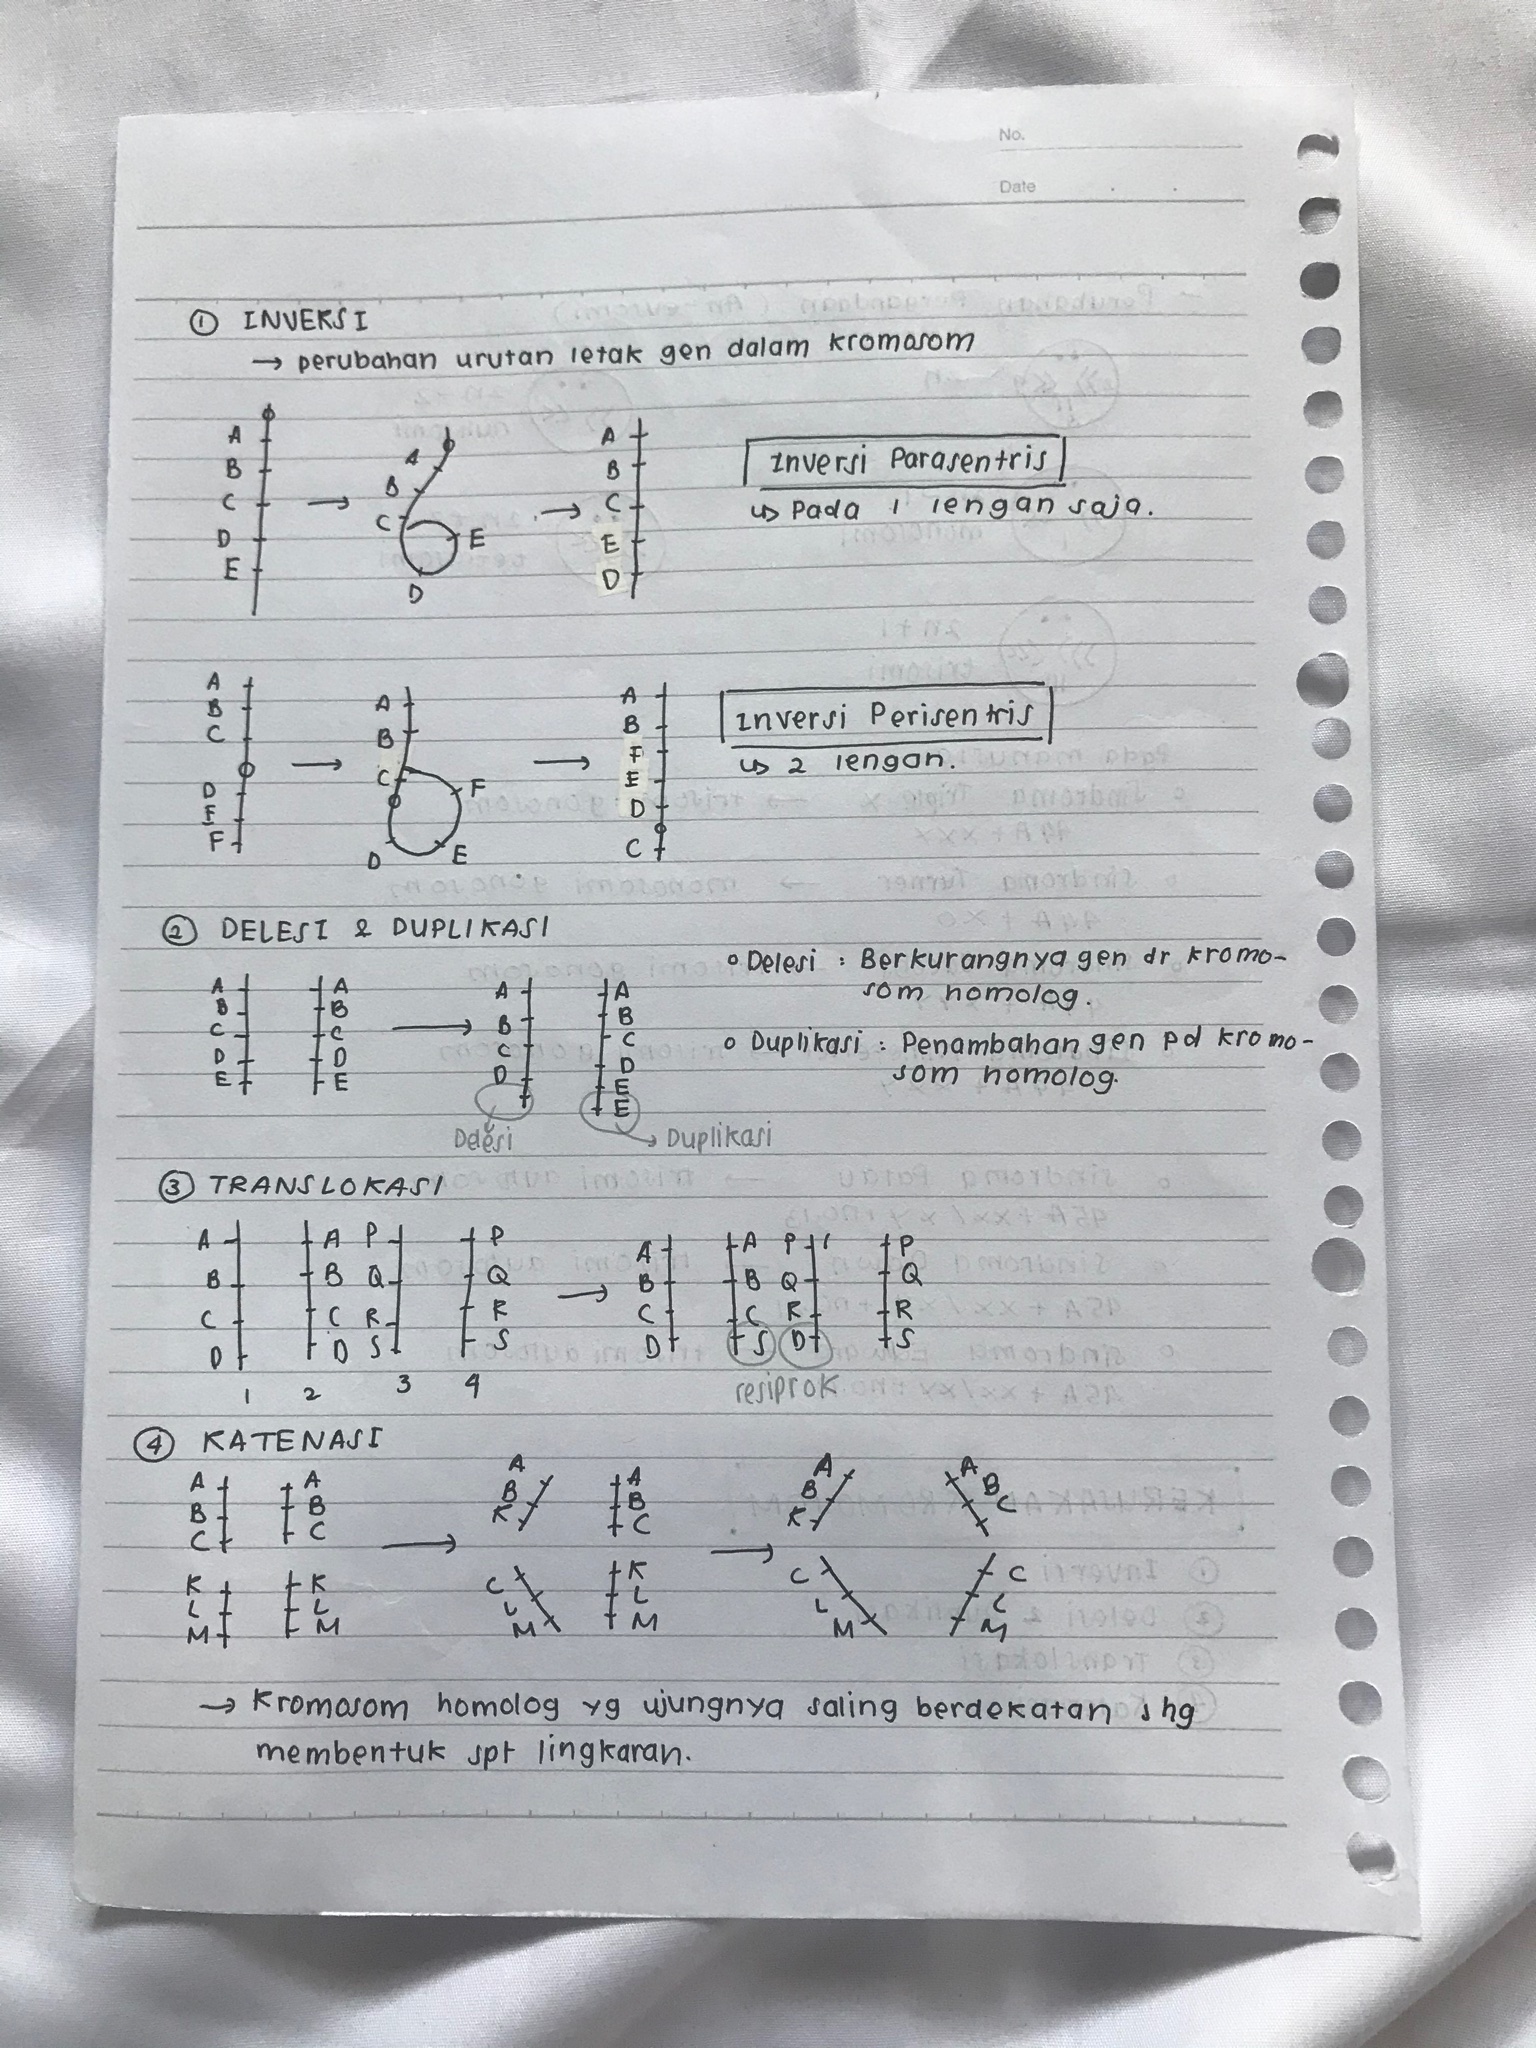 No.
Date
① INVERSI
→ perubahan urutan letak gen dalam kromosom
A
B
C
D
E
→
A
B
C
D
E
→
A
B
C
E
D
Inversi Parasentris
↳ Pada 1 lengan saja.
A
B
C
D
E
F
→
A
B
C
D
E
F
→
A
B
F
E
D
C
Inversi Perisentris
↳ 2 lengan.
② DELESI & DUPLIKASI
A
B
C
D
E
A
B
C
D
E
→
A
B
C
D
Delesi
A
B
C
D
E
E
→ Duplikasi
o Delesi : Berkurangnya gen dr kromo-
som homolog.
o Duplikasi : Penambahan gen pd kromo-
som homolog.
③ TRANSLOKASI
A
B
C
D
1
A
B
C
D
2
P
Q
R
S
3
P
Q
R
S
4
→
A
B
C
D
A
B
C
S
P
Q
R
D
resiprok
P
Q
R
S
④ KATENASI
A
B
C
A
B
C
K
L
M
K
L
M
→
A
B
K
A
B
C
C
L
M
K
L
M
→
A
B
K
A
B
C
C
L
M
C
L
M
→ Kromosom homolog yg ujungnya saling berdekatan shg
membentuk spt lingkaran.